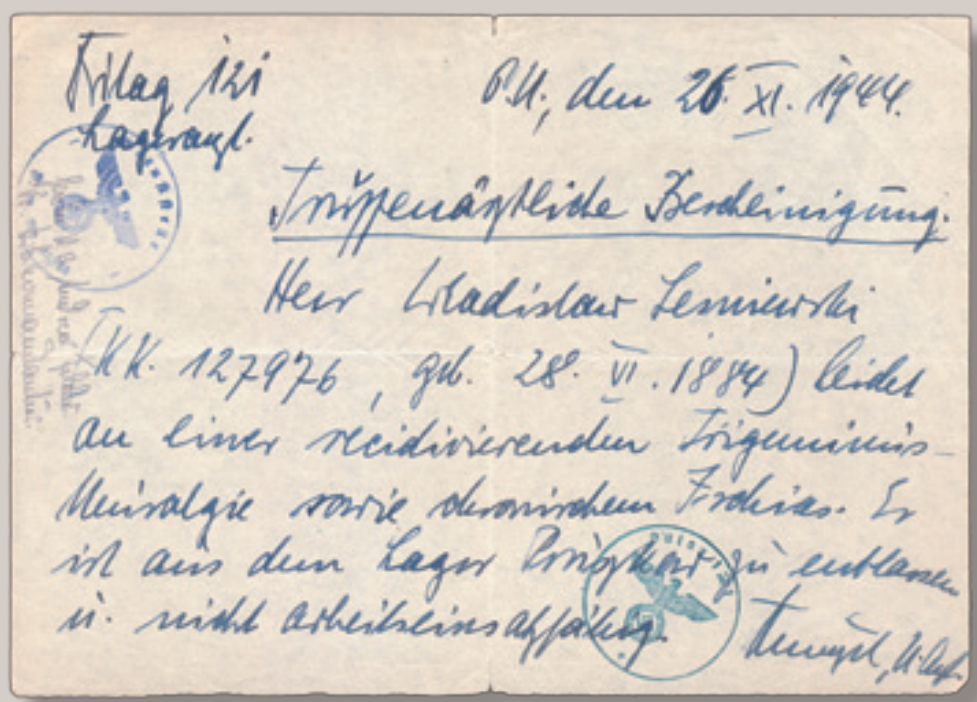 Dulag 121
Lagerarzt.
O.U., den 26. XI. 1944.
Truppenärztliche Bescheinigung.
Herr Wladislaw Lesniewski
(KK. 127976, geb. 28. VI. 1884) leidet
an einer recidivierenden Trigeminus-
Neuralgie sowie chronischem Ischias. Er
ist aus dem Lager Pruszkow zu entlassen
u. nicht arbeitseinsatzfähig.